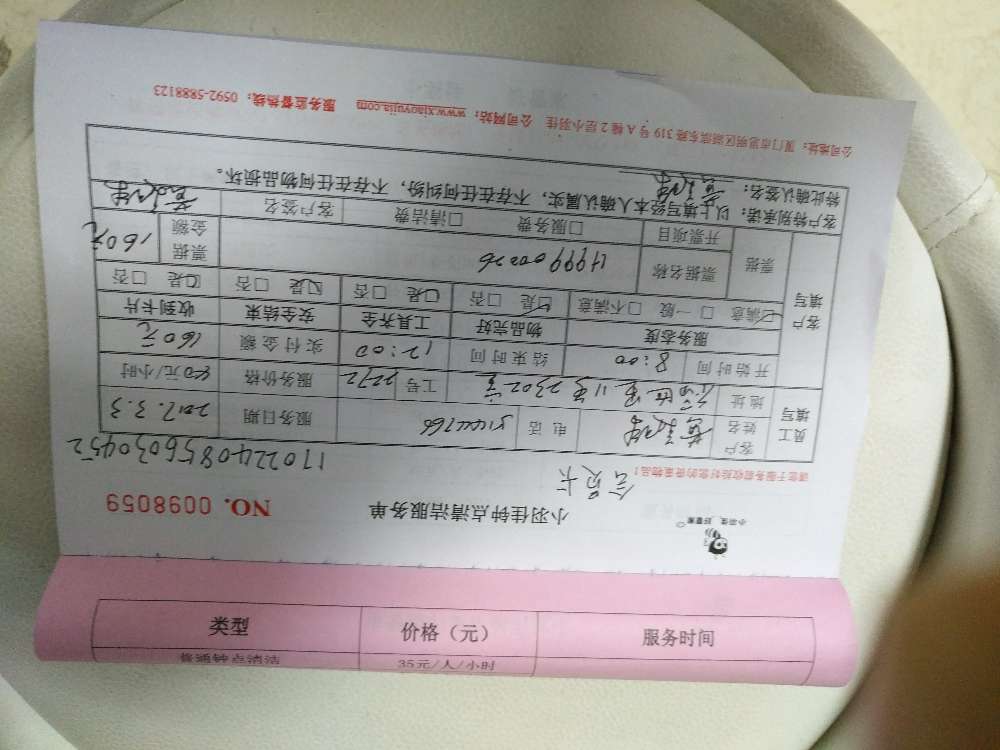 小羽佳，好管家
小羽佳钟点清洁服务单
NO. 0098059
会员卡
请您于服务前收拾好您的贵重物品！
1702240856030452
员工填写
客户姓名
电话
服务日期 2017.3.3
地址
2302室
工号 2272
服务价格 40元/小时
开始时间 8:00 结束时间 12:00 实付金额 160元
客户填写
服务态度 物品完好 工具齐全 安全结束 收到卡片
☑满意 □一般 □不满意 ☑是 □否 ☑是 □否 ☑是 □否 ☑是 □否
票据 票据名称 49990026 票据金额 160元
开票项目 □服务费 □清洁费 客户签名
客户特别承诺：以上填写经本人确认属实，不存在任何纠纷，不存在任何物品损坏。
特此确认签名：
公司地址：厦门市思明区湖滨东路 319 号 A 幢 2 层小羽佳 公司网站：www.xiaoyujia.com 服务监督热线：0592-5888123
类型 价格（元） 服务时间
普通钟点清洁 35元/人/小时